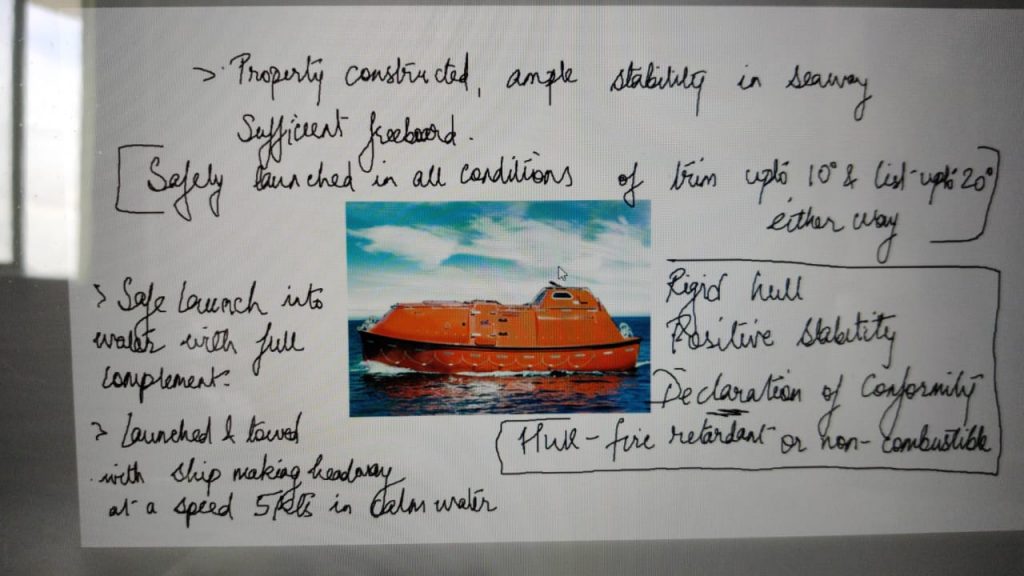 > Property constructed, ample stability in seaway
Sufficient freeboard.
Safely launched in all conditions of trim upto 10° & list upto 20°
either way
> Safe launch into
water with full
complement.
> Launched & towed
with ship making headway
at a speed 5kts in Calm water
Rigid hull
Positive stability
Declaration of Conformity
Hull - fire retardant or non-combustible